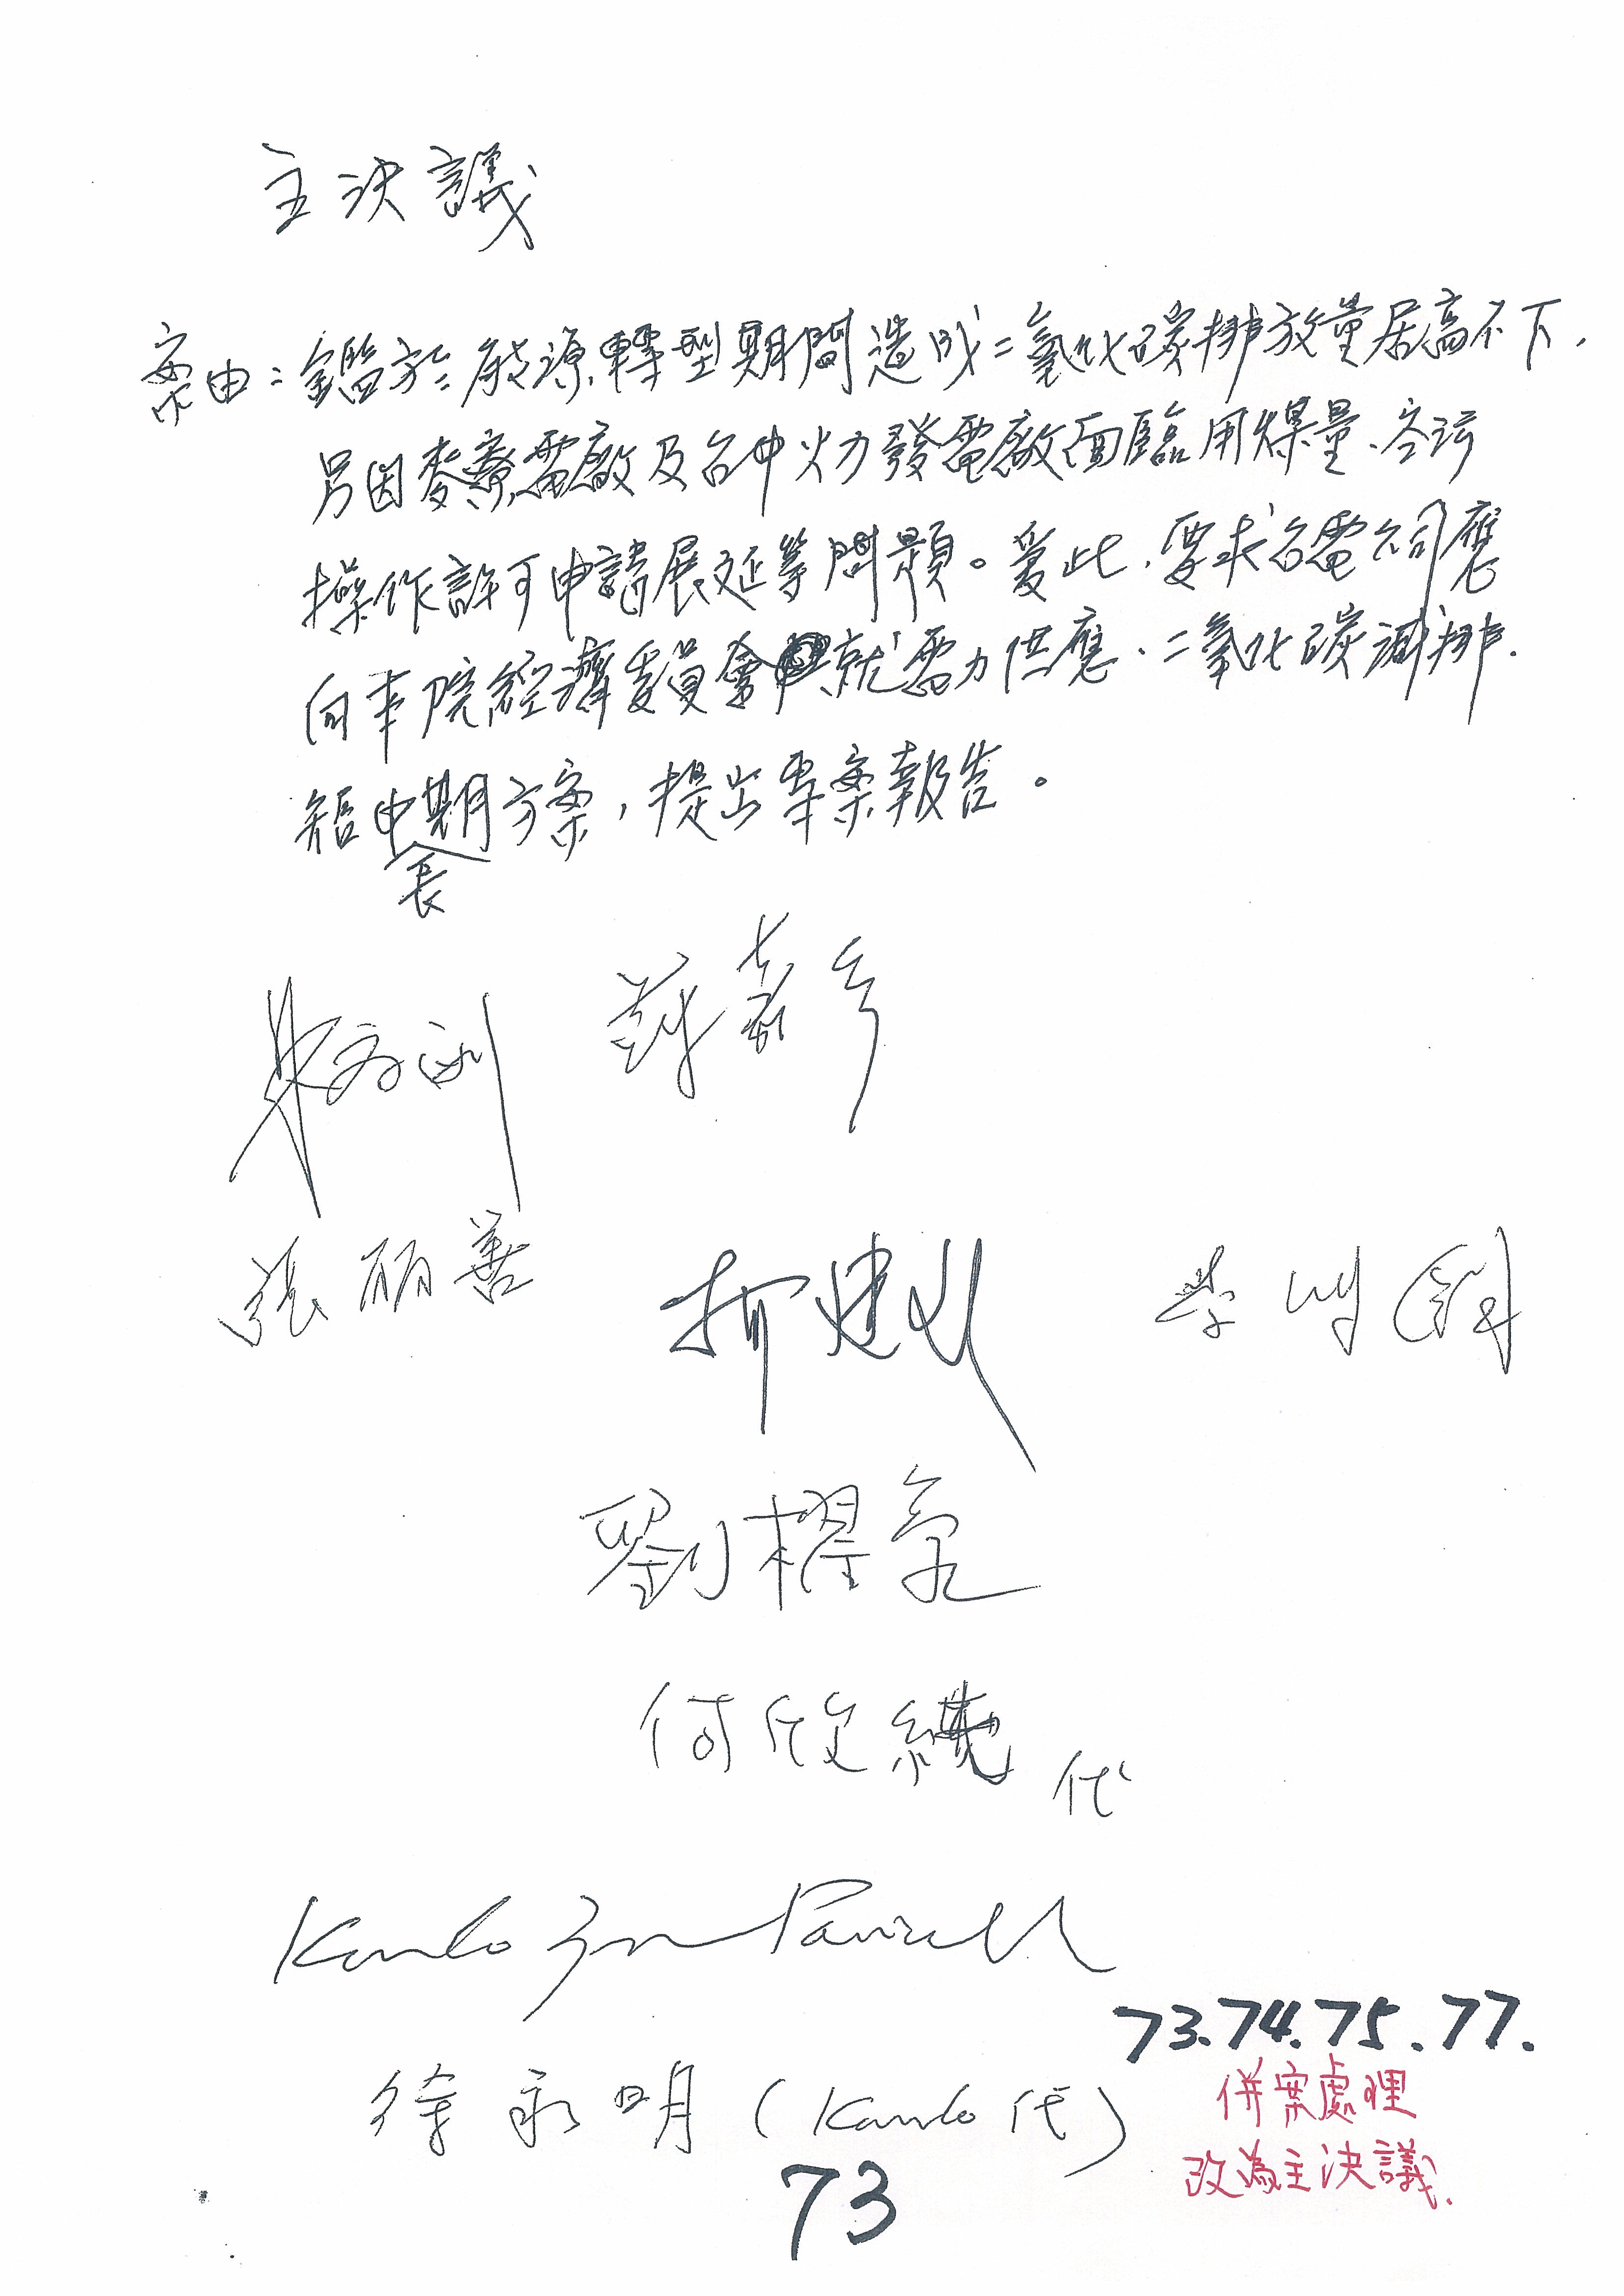 主決議
案由：鑑於能源轉型期間造成二氧化碳排放量居高不下，
另因麥寮電廠及台中火力發電廠面臨用煤量、空污
操作許可申請展延等問題。爰此，要求台電公司應
向本院經濟委員會就電力供應、二氧化碳減排，
短中長期方案，提出專案報告。
張麗善
柯建
劉櫂
何欣純 代
Kawlo
徐永明 (Kawlo代)
73.74.75.77.
併案處理
改為主決議.
73